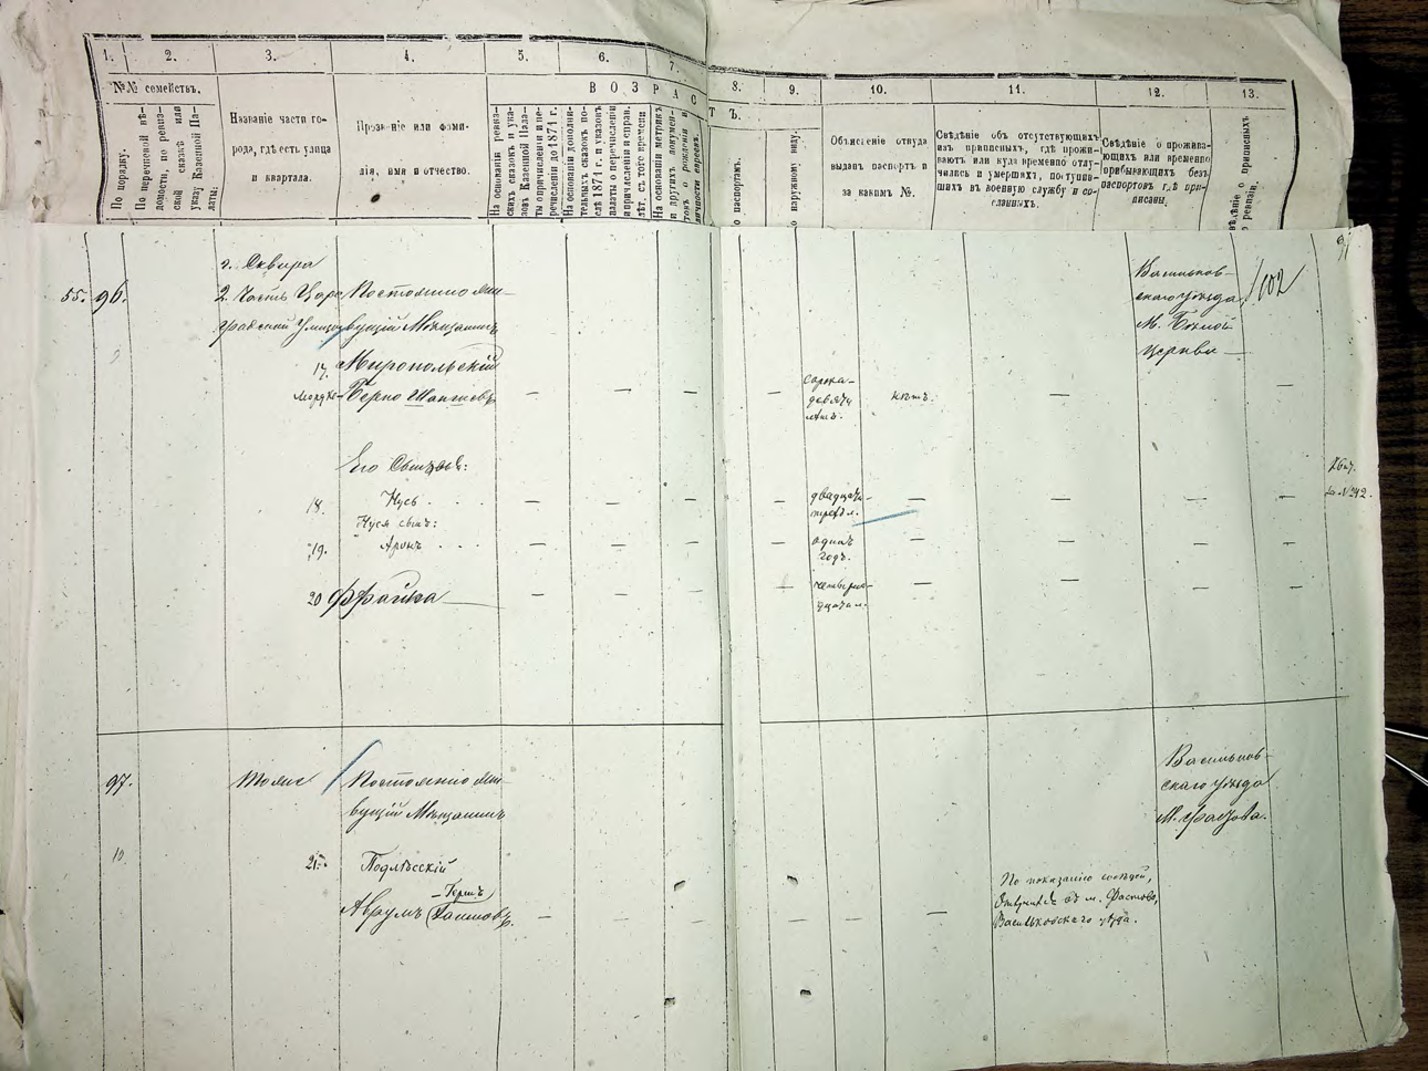 1.
2.
3.
4.
5.
6.
7.
8.
9.
10.
11.
12.
13.
№№ семействъ.
В О З Р А С
Т Ъ.
По порядку.
По переписной вѣ-
домости, по ревиз-
ской сказкѣ или
указу Казенной Па-
латы:
Названіе части го-
рода, гдѣ есть улица
и квартала.
Прозваніе или фами-
лія, имя и отчество.
На основаніи ревиз-
скихъ сказокъ и ука-
зовъ Казенной Пала-
ты о причисленіи и пе-
речисленіи до 1871 г.
На основаніи дополни-
тельныхъ сказокъ по-
слѣ 1871 г. и указовъ
палаты о перечисленіи
и причисленіи и справ.
лѣт. съ того времени
На основаніи метрикъ
и другихъ докумен-
товъ о рожденіи и
личности евреевъ.
о паспортамъ.
о наружному виду.
Объясненіе откуда
выданъ паспортъ и
за какимъ №.
Свѣдѣніе объ отсутствующихъ
изъ приписныхъ, гдѣ прожи-
ваютъ или куда временно отлу-
чились и умершихъ, поступив-
шихъ въ военную службу и со-
сланныхъ.
Свѣдѣніе о прожива-
ющихъ или временно
прибывающихъ безъ
паспортовъ гдѣ при-
писаны.
вѣдѣніе о приписныхъ
о ревизіи.
г. Сквира
55. 96.
2. Часть Царе
градской Улицы
Постоянно жи-
вущій Мѣщанинъ
17. Миропольскій
Мордко-Берко
сорка-
девять
лѣтъ.
нѣтъ.
Васильков-
скаго уѣзда
М. Бѣлой
Церкви
102
Его Сыновья:
18. Нусь
двадцать
Нуся сынъ:
19. Аронъ
одинъ
годъ.
20 Фрайка
№ 242.
97.
Тоже
Постоянно жи-
вущій Мѣщанинъ
10.
21. Подлѣсскій
Аврумъ
-Герш
По показанію сосѣдей,
въ м. Фастовѣ,
Васильковскаго уѣзда.
Васильков-
скаго уѣзда
М. Фастова.